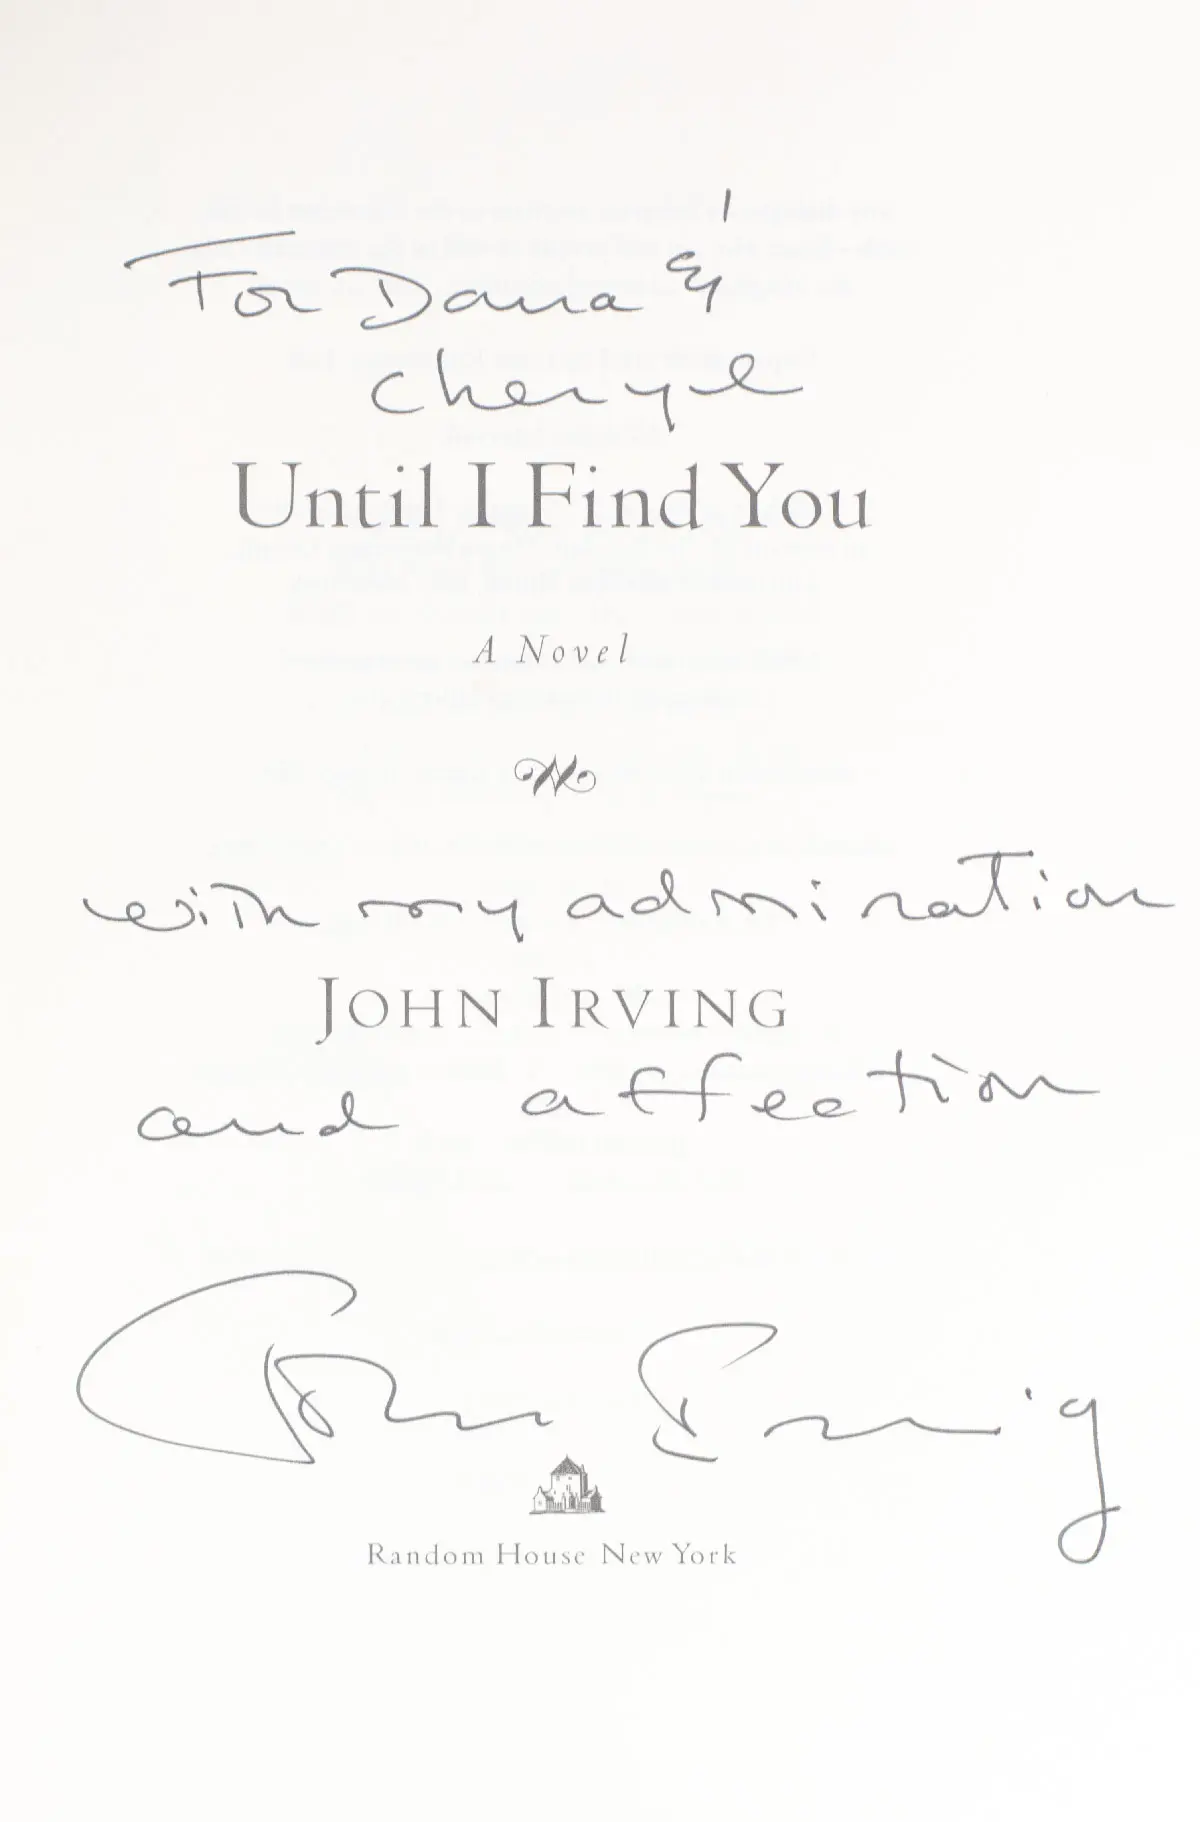 For Dana &
Cheryl
Until I Find You
A Novel
with my admiration
JOHN IRVING
and affection
John Irving
Random House New York